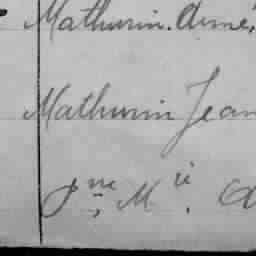 Mathurin. Aimé,
Mathurin Jean
Jne, M ie.